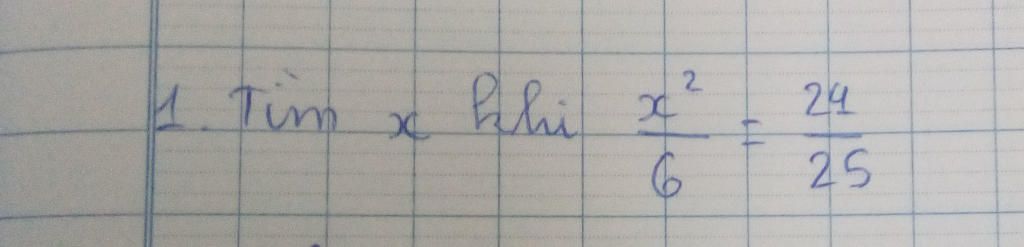 1. Tìm x khi x²/6 = 24/25